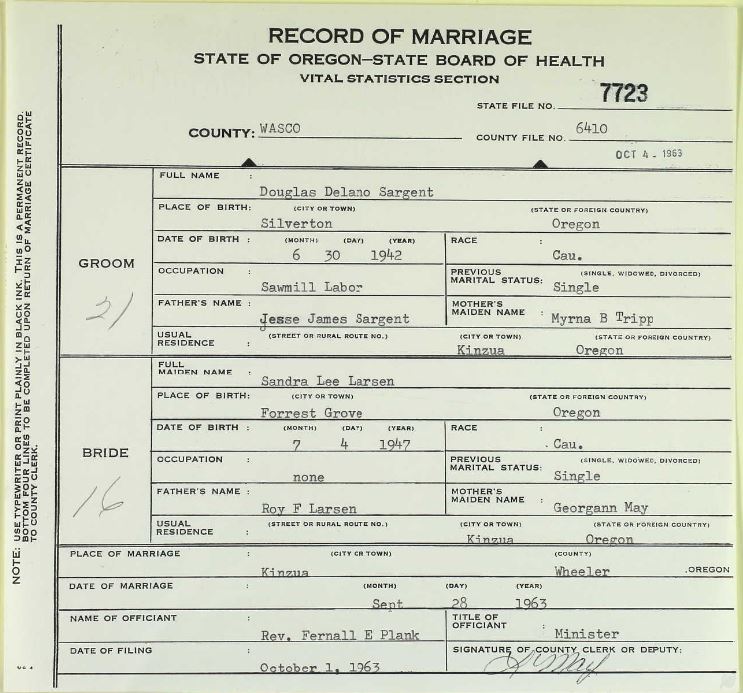 RECORD OF MARRIAGE
STATE OF OREGON—STATE BOARD OF HEALTH
VITAL STATISTICS SECTION
STATE FILE NO. 7723
COUNTY: WASCO COUNTY FILE NO. 6410
OCT 4 - 1963
NOTE: USE TYPEWRITER OR PRINT PLAINLY IN BLACK INK. THIS IS A PERMANENT RECORD.
BOTTOM FOUR LINES TO BE COMPLETED UPON RETURN OF MARRIAGE CERTIFICATE
TO COUNTY CLERK.
GROOM
21
FULL NAME :
Douglas Delano Sargent
PLACE OF BIRTH: (CITY OR TOWN) (STATE OR FOREIGN COUNTRY)
Silverton Oregon
DATE OF BIRTH : (MONTH) (DAY) (YEAR) RACE :
6 30 1942 Cau.
OCCUPATION : PREVIOUS MARITAL STATUS: (SINGLE, WIDOWED, DIVORCED)
Sawmill Labor Single
FATHER'S NAME : MOTHER'S MAIDEN NAME :
Jesse James Sargent Myrna B Tripp
USUAL RESIDENCE : (STREET OR RURAL ROUTE NO.) (CITY OR TOWN) (STATE OR FOREIGN COUNTRY)
Kinzua Oregon
BRIDE
16
FULL MAIDEN NAME :
Sandra Lee Larsen
PLACE OF BIRTH: (CITY OR TOWN) (STATE OR FOREIGN COUNTRY)
Forrest Grove Oregon
DATE OF BIRTH : (MONTH) (DAY) (YEAR) RACE :
7 4 1947 Cau.
OCCUPATION : PREVIOUS MARITAL STATUS: (SINGLE, WIDOWED, DIVORCED)
none Single
FATHER'S NAME : MOTHER'S MAIDEN NAME :
Roy F Larsen Georgann May
USUAL RESIDENCE : (STREET OR RURAL ROUTE NO.) (CITY OR TOWN) (STATE OR FOREIGN COUNTRY)
Kinzua Oregon
PLACE OF MARRIAGE : (CITY OR TOWN) (COUNTY)
Kinzua Wheeler ,OREGON
DATE OF MARRIAGE : (MONTH) (DAY) (YEAR)
Sept 28 1963
NAME OF OFFICIANT : TITLE OF OFFICIANT :
Rev. Fernall E Plank Minister
DATE OF FILING : SIGNATURE OF COUNTY CLERK OR DEPUTY:
October 1, 1963